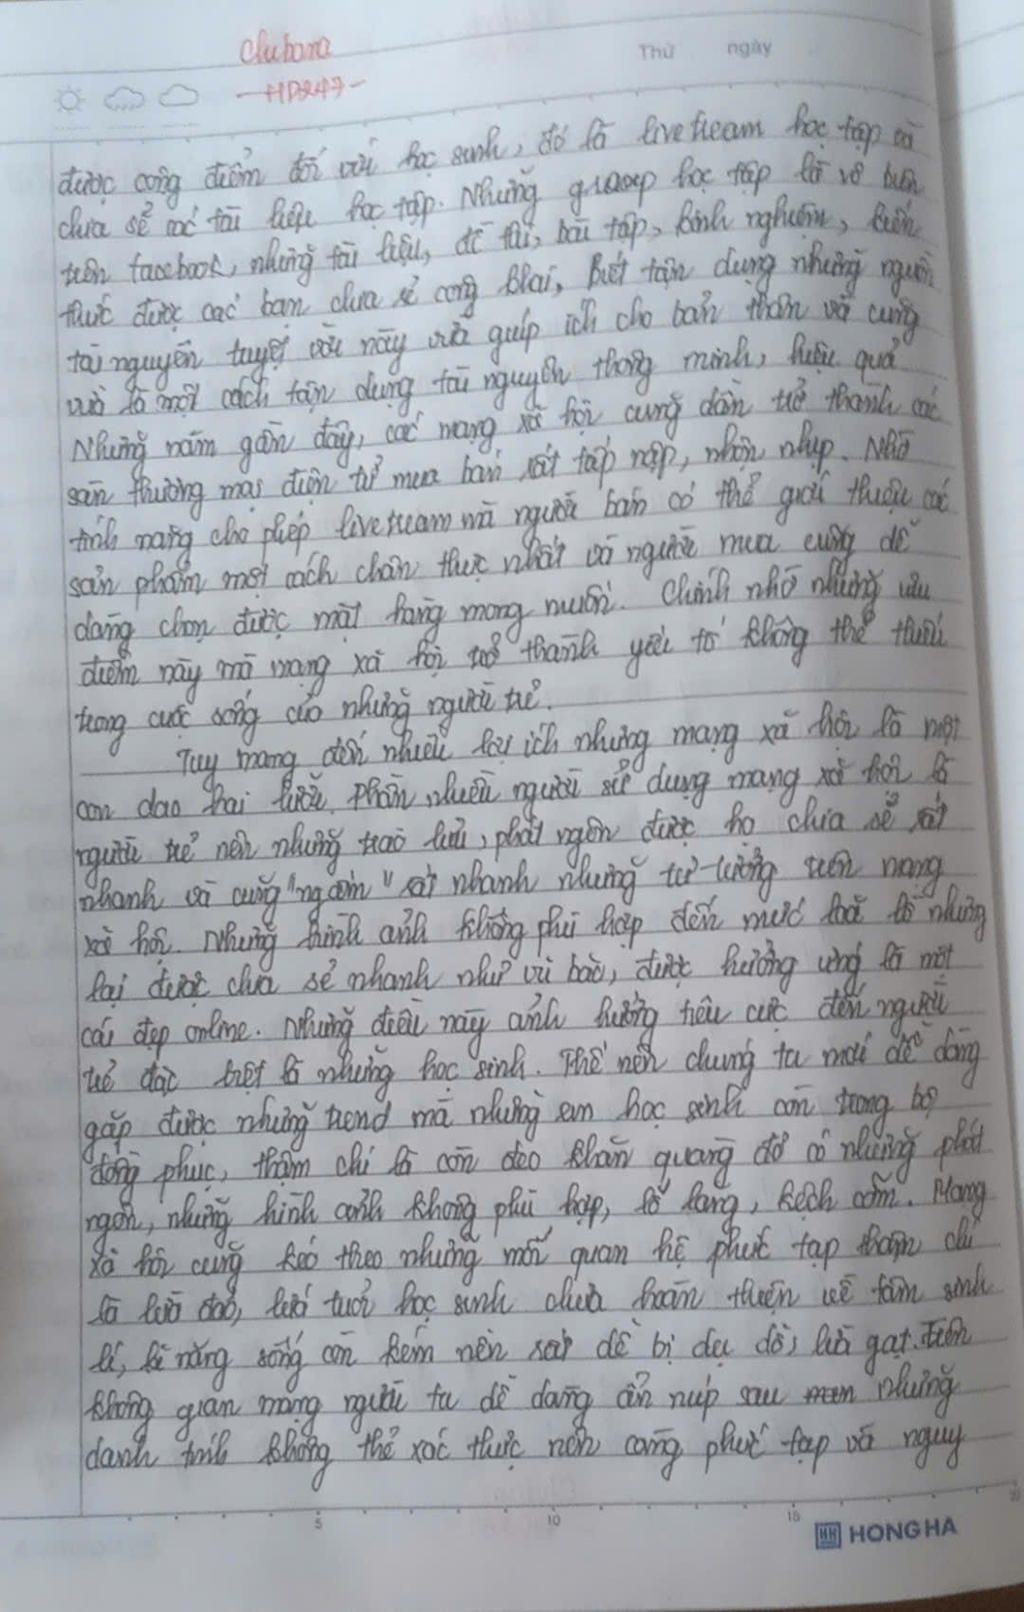 Chuhona
Thứ ngày
HD247
được cộng điểm đối với học sinh, đó là livetream học tập và
chia sẻ các tài liệu học tập. Những group học tập là vô biên
trên facebook, những tài liệu, đề thi, bài tập, kinh nghiệm, kiến
thức được các bạn chia sẻ công khai, biết tận dụng những nguồn
tài nguyên tuyệt vời này vừa giúp ích cho bản thân và cũng
vừa là một cách tận dụng tài nguyên thông minh, hiệu quả
Những năm gần đây, các mạng xã hội cũng dần trở thành các
sàn thương mại điện tử mua bán rất tấp nập, nhộn nhịp. Nhờ
tính năng cho phép livetream mà người bán có thể giới thiệu các
sản phẩm một cách chân thực nhất và người mua cũng dễ
dàng chọn được mặt hàng mong muốn. Chính nhờ những ưu
điểm này mà mạng xã hội trở thành yếu tố không thể thiếu
trong cuộc sống của những người trẻ.
Tuy mang đến nhiều lợi ích nhưng mạng xã hội là một
con dao hai lưỡi. Phần nhiều người sử dụng mạng xã hội là
người trẻ nên những trào lưu, phát ngôn được họ chia sẻ rất
nhanh và cũng "ngấm" rất nhanh những tư tưởng trên mạng
xã hội. Những hình ảnh không phù hợp đến mức loã lồ nhưng
lại được chia sẻ nhanh như vũ bão, được hưởng ứng là một
cái đẹp online. Những điều này ảnh hưởng tiêu cực đến người
trẻ đặc biệt là những học sinh. Thế nên chúng ta mới dễ dàng
gặp được những trend mà những em học sinh còn trong bộ
đồng phục, thậm chí là còn đeo khăn quàng đỏ có những phát
ngôn, những hình ảnh không phù hợp, lố lăng, kệch cỡm. Mạng
xã hội cũng kéo theo những mối quan hệ phức tạp thậm chí
là lừa đảo, lứa tuổi học sinh chưa hoàn thiện về tâm sinh
lí, kĩ năng sống còn kém nên rất dễ bị dụ dỗ, lừa gạt. Trên
không gian mạng người ta dễ dàng ẩn núp sau những
danh tính không thể xác thực nên càng phức tạp và nguy
5 10 15 20
HH HONG HA